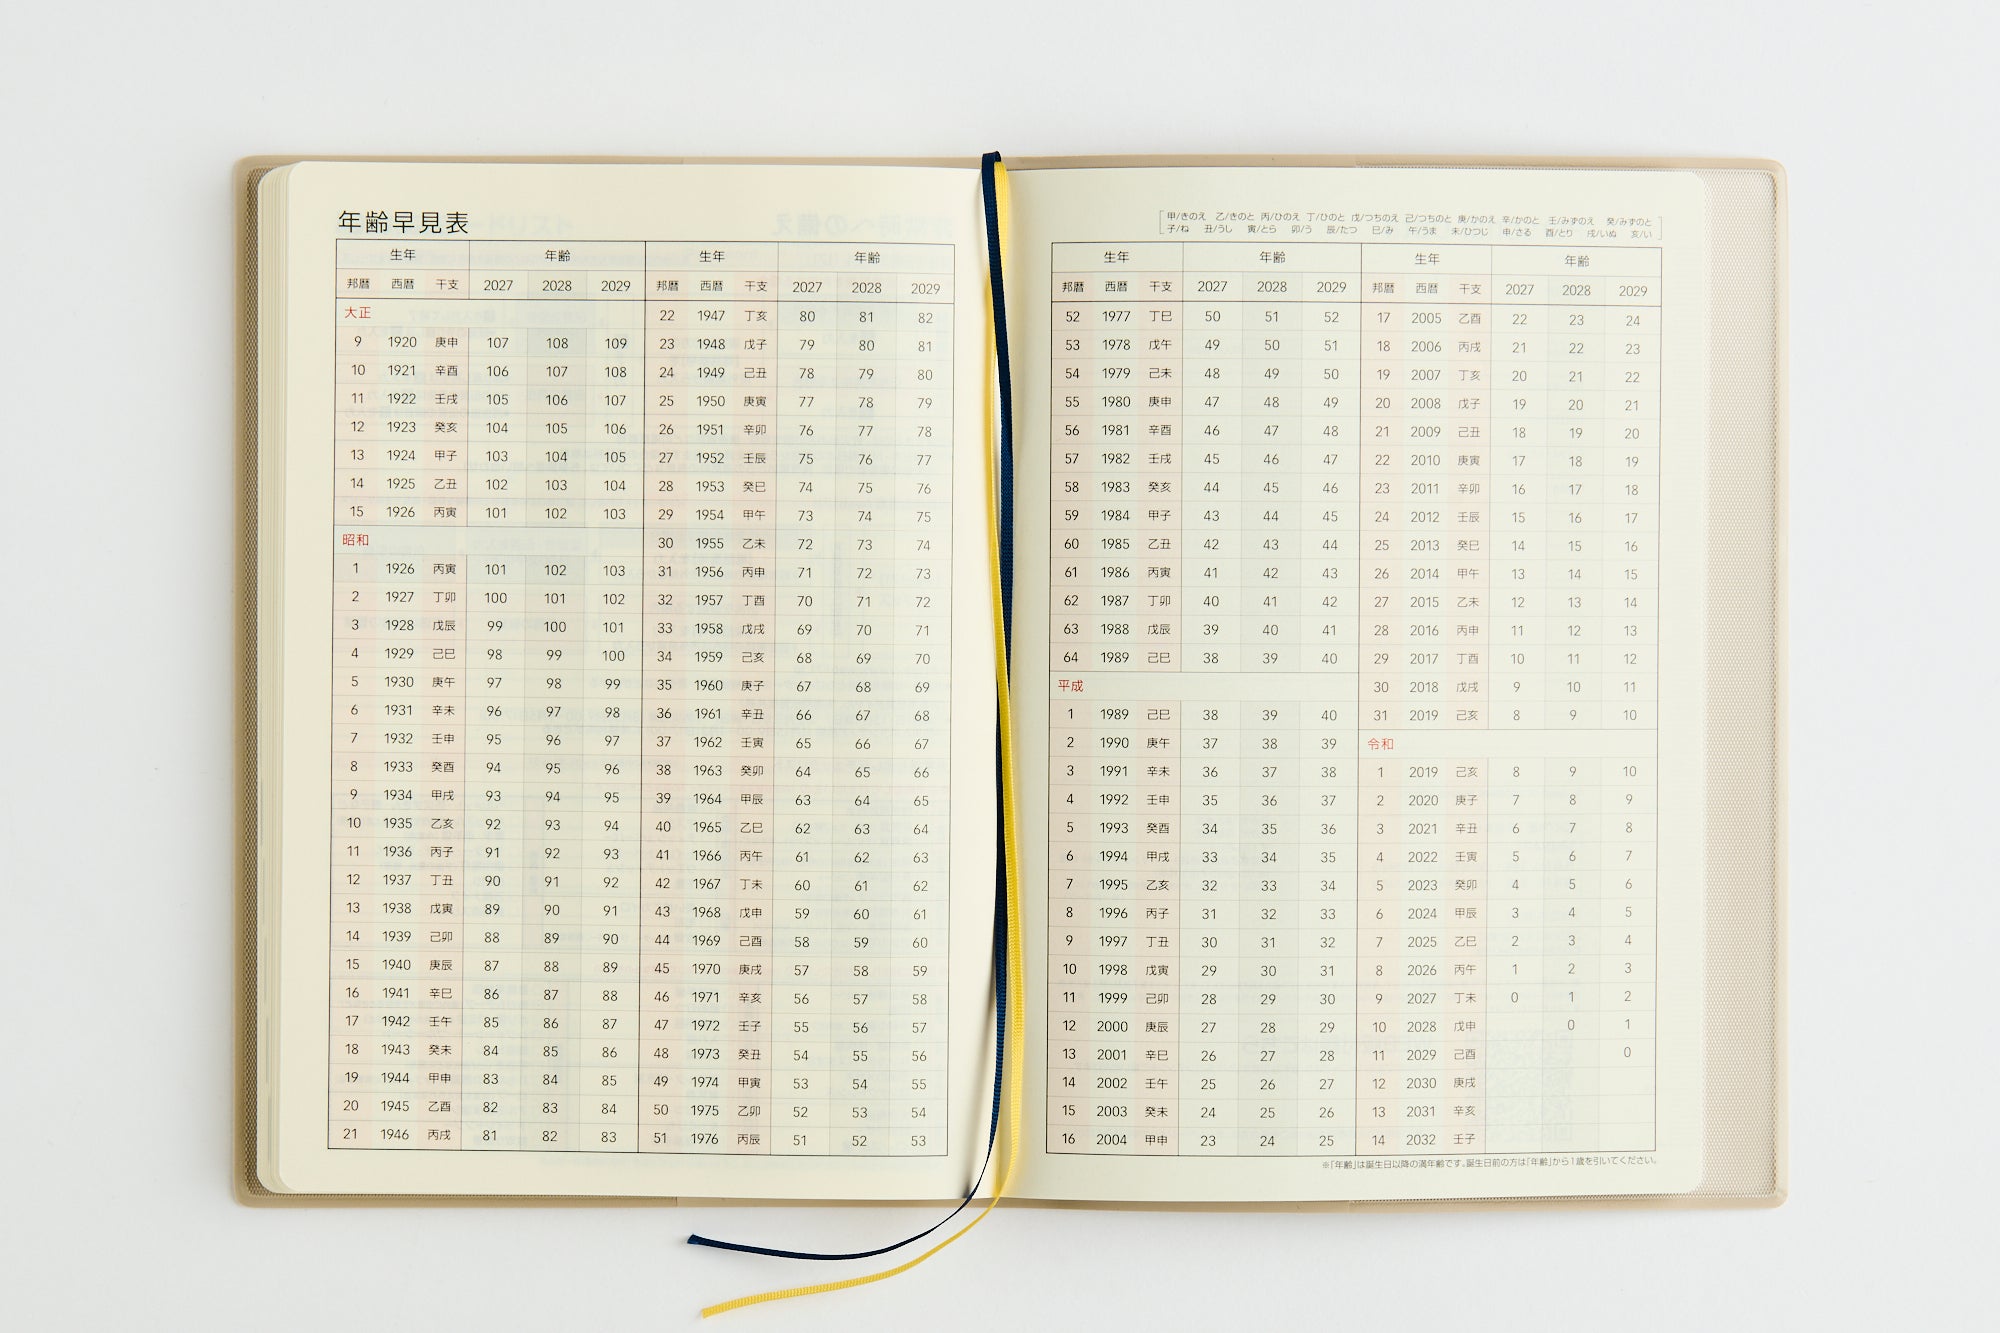 年齢早見表
生年 年齢 生年 年齢
邦暦 西暦 干支 2027 2028 2029 邦暦 西暦 干支 2027 2028 2029
大正 22 1947 丁亥 80 81 82
9 1920 庚申 107 108 109 23 1948 戊子 79 80 81
10 1921 辛酉 106 107 108 24 1949 己丑 78 79 80
11 1922 壬戌 105 106 107 25 1950 庚寅 77 78 79
12 1923 癸亥 104 105 106 26 1951 辛卯 76 77 78
13 1924 甲子 103 104 105 27 1952 壬辰 75 76 77
14 1925 乙丑 102 103 104 28 1953 癸巳 74 75 76
15 1926 丙寅 101 102 103 29 1954 甲午 73 74 75
昭和 30 1955 乙未 72 73 74
1 1926 丙寅 101 102 103 31 1956 丙申 71 72 73
2 1927 丁卯 100 101 102 32 1957 丁酉 70 71 72
3 1928 戊辰 99 100 101 33 1958 戊戌 69 70 71
4 1929 己巳 98 99 100 34 1959 己亥 68 69 70
5 1930 庚午 97 98 99 35 1960 庚子 67 68 69
6 1931 辛未 96 97 98 36 1961 辛丑 66 67 68
7 1932 壬申 95 96 97 37 1962 壬寅 65 66 67
8 1933 癸酉 94 95 96 38 1963 癸卯 64 65 66
9 1934 甲戌 93 94 95 39 1964 甲辰 63 64 65
10 1935 乙亥 92 93 94 40 1965 乙巳 62 63 64
11 1936 丙子 91 92 93 41 1966 丙午 61 62 63
12 1937 丁丑 90 91 92 42 1967 丁未 60 61 62
13 1938 戊寅 89 90 91 43 1968 戊申 59 60 61
14 1939 己卯 88 89 90 44 1969 己酉 58 59 60
15 1940 庚辰 87 88 89 45 1970 庚戌 57 58 59
16 1941 辛巳 86 87 88 46 1971 辛亥 56 57 58
17 1942 壬午 85 86 87 47 1972 壬子 55 56 57
18 1943 癸未 84 85 86 48 1973 癸丑 54 55 56
19 1944 甲申 83 84 85 49 1974 甲寅 53 54 55
20 1945 乙酉 82 83 84 50 1975 乙卯 52 53 54
21 1946 丙戌 81 82 83 51 1976 丙辰 51 52 53
甲/きのえ 乙/きのと 丙/ひのえ 丁/ひのと 戊/つちのえ 己/つちのと 庚/かのえ 辛/かのと 壬/みずのえ 癸/みずのと
子/ね 丑/うし 寅/とら 卯/う 辰/たつ 巳/み 午/うま 未/ひつじ 申/さる 酉/とり 戌/いぬ 亥/い
生年 年齢 生年 年齢
邦暦 西暦 干支 2027 2028 2029 邦暦 西暦 干支 2027 2028 2029
52 1977 丁巳 50 51 52 17 2005 乙酉 22 23 24
53 1978 戊午 49 50 51 18 2006 丙戌 21 22 23
54 1979 己未 48 49 50 19 2007 丁亥 20 21 22
55 1980 庚申 47 48 49 20 2008 戊子 19 20 21
56 1981 辛酉 46 47 48 21 2009 己丑 18 19 20
57 1982 壬戌 45 46 47 22 2010 庚寅 17 18 19
58 1983 癸亥 44 45 46 23 2011 辛卯 16 17 18
59 1984 甲子 43 44 45 24 2012 壬辰 15 16 17
60 1985 乙丑 42 43 44 25 2013 癸巳 14 15 16
61 1986 丙寅 41 42 43 26 2014 甲午 13 14 15
62 1987 丁卯 40 41 42 27 2015 乙未 12 13 14
63 1988 戊辰 39 40 41 28 2016 丙申 11 12 13
64 1989 己巳 38 39 40 29 2017 丁酉 10 11 12
平成 30 2018 戊戌 9 10 11
1 1989 己巳 38 39 40 31 2019 己亥 8 9 10
2 1990 庚午 37 38 39 令和
3 1991 辛未 36 37 38 1 2019 己亥 8 9 10
4 1992 壬申 35 36 37 2 2020 庚子 7 8 9
5 1993 癸酉 34 35 36 3 2021 辛丑 6 7 8
6 1994 甲戌 33 34 35 4 2022 壬寅 5 6 7
7 1995 乙亥 32 33 34 5 2023 癸卯 4 5 6
8 1996 丙子 31 32 33 6 2024 甲辰 3 4 5
9 1997 丁丑 30 31 32 7 2025 乙巳 2 3 4
10 1998 戊寅 29 30 31 8 2026 丙午 1 2 3
11 1999 己卯 28 29 30 9 2027 丁未 0 1 2
12 2000 庚辰 27 28 29 10 2028 戊申 0 1
13 2001 辛巳 26 27 28 11 2029 己酉 0
14 2002 壬午 25 26 27 12 2030 庚戌
15 2003 癸未 24 25 26 13 2031 辛亥
16 2004 甲申 23 24 25 14 2032 壬子
※「年齢」は誕生日以降の満年齢です。誕生日前の方は「年齢」から1歳を引いてください。